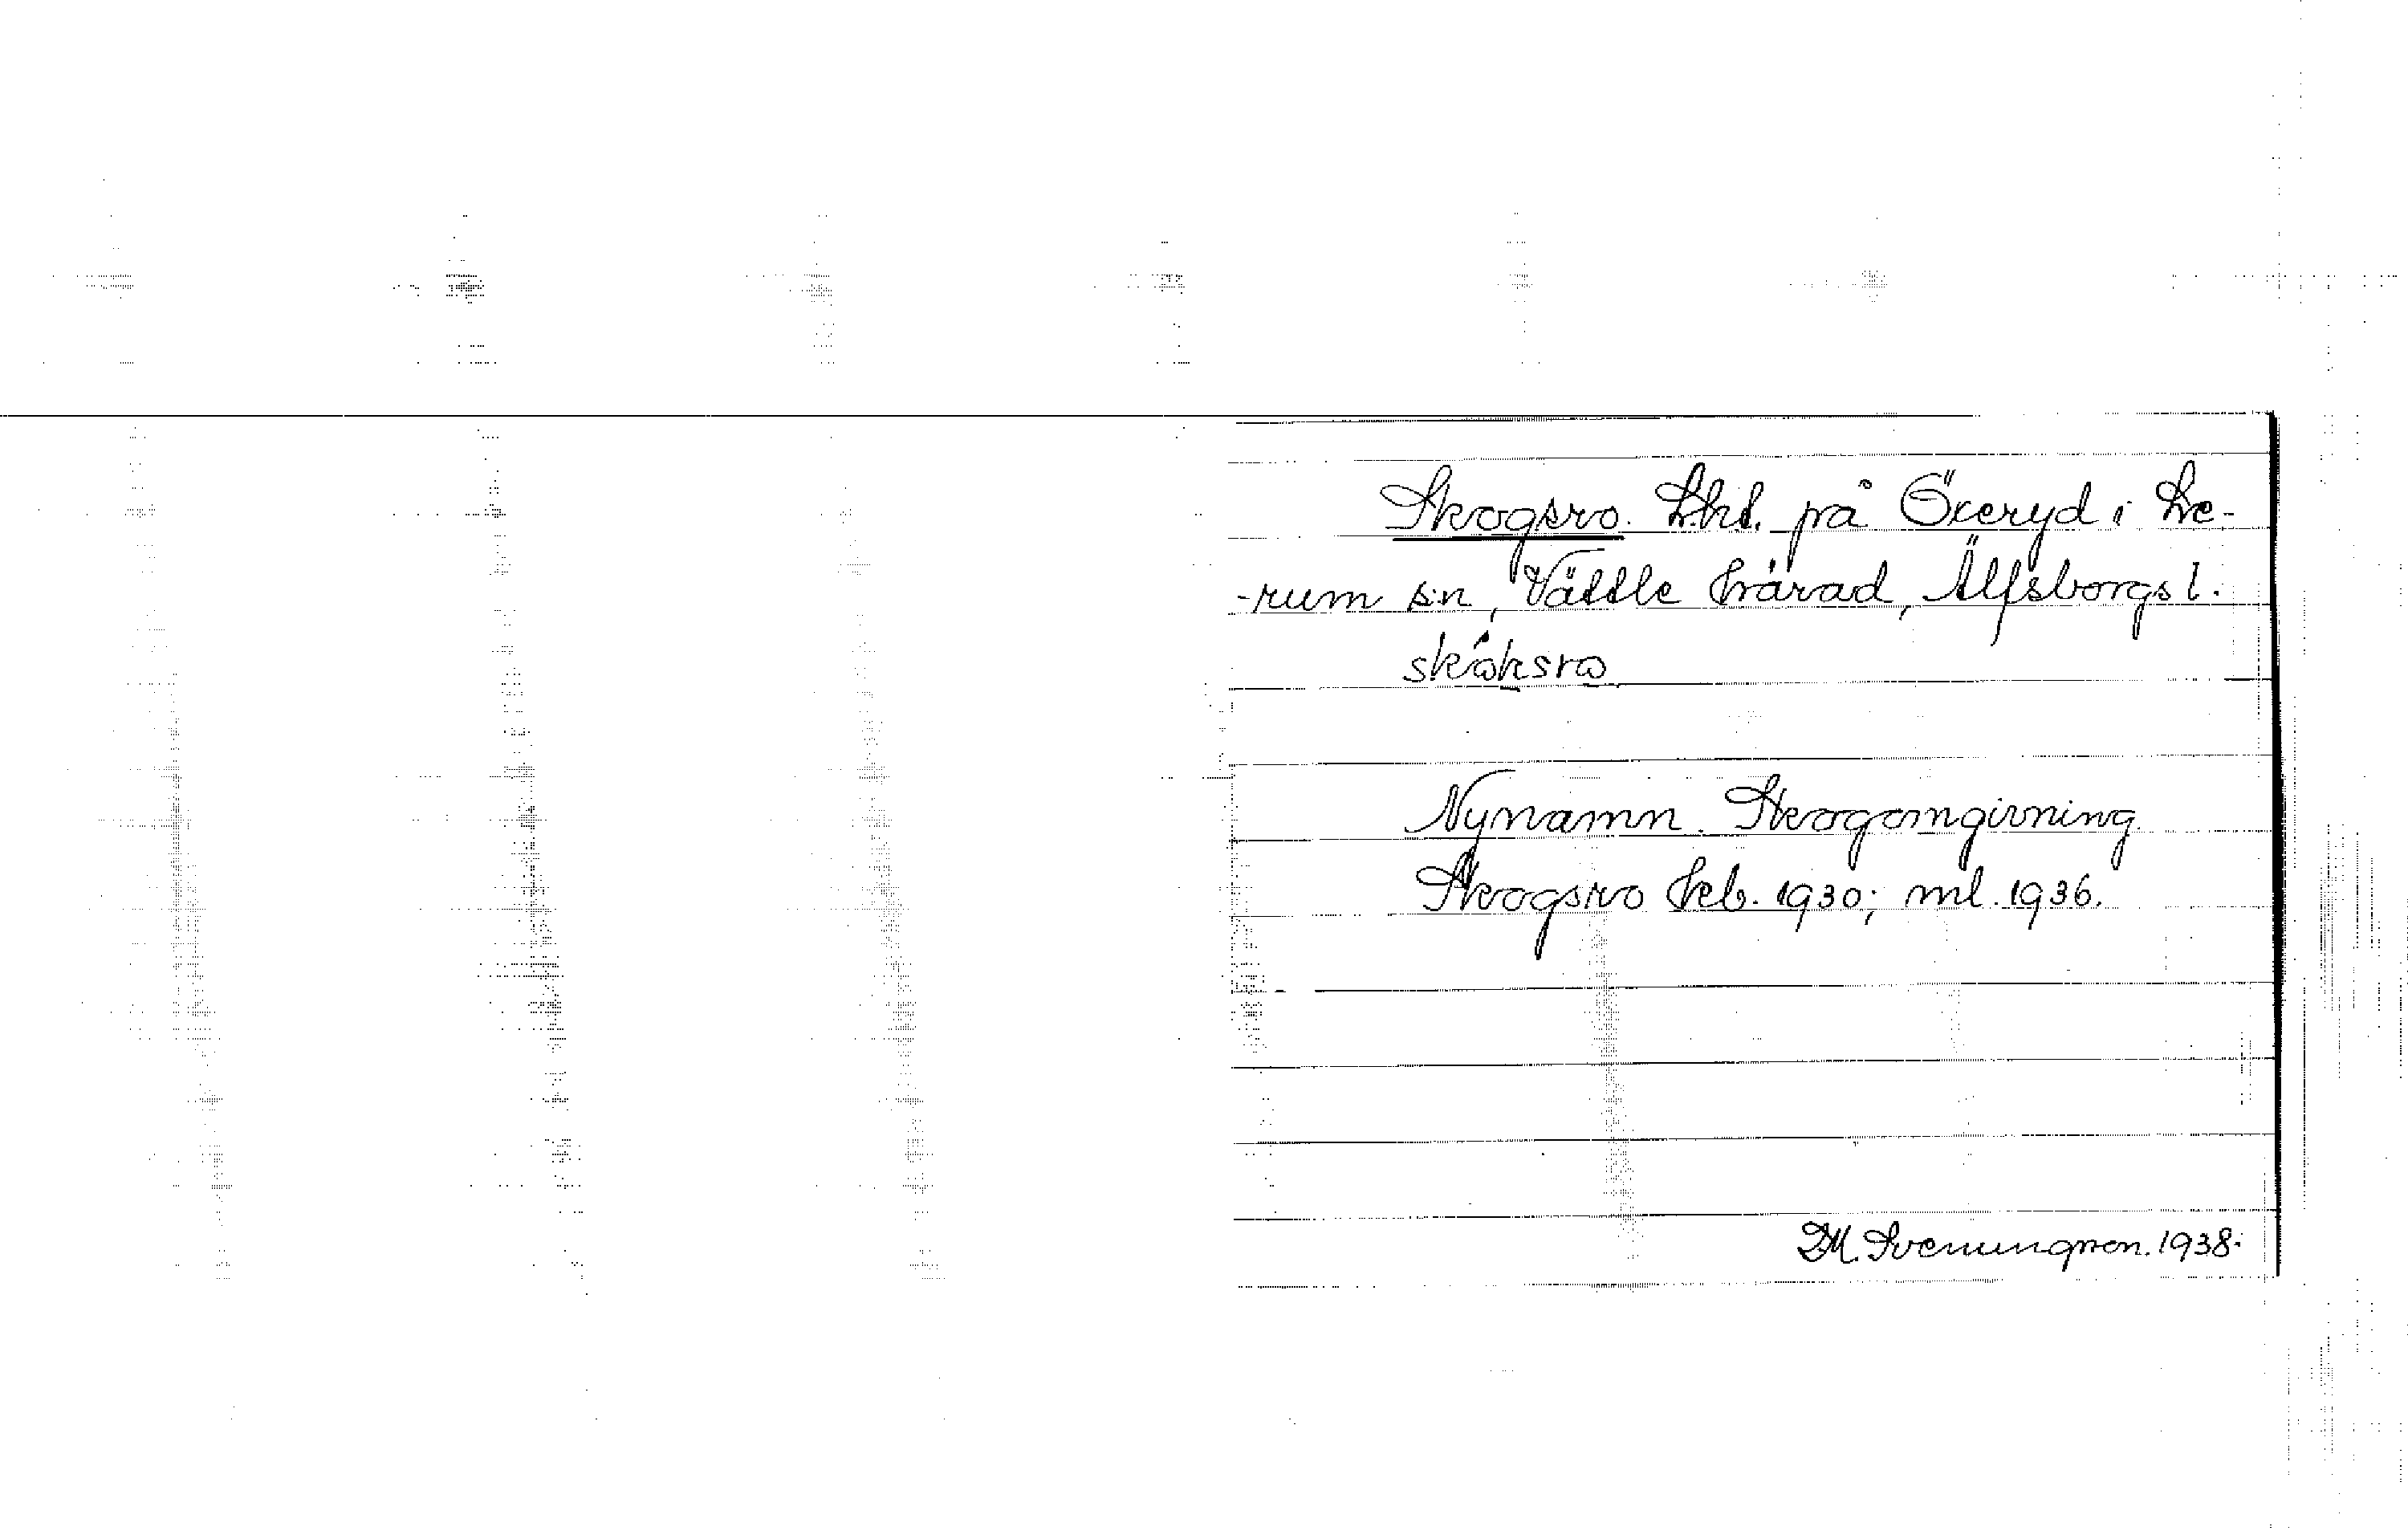 Skogsro. Lht. på Öxeryd i Le-
-rum sn, Vättle härad, Älfsborgs l.
skọ́ksrọ
Nynamn. Skogomgivning.
Skogsro Jeb. 1930; ml. 1936.
D.M. Svenungsson. 1938.